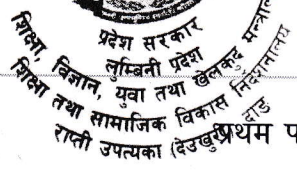 प्रदेश सरकार
लुम्बिनी प्रदेश
शिक्षा, विज्ञान, युवा तथा खेलकुद
शिक्षा तथा सामाजिक विकास निर्देशनालय
राप्ती उपत्यका (देउखुरी
प्रथम